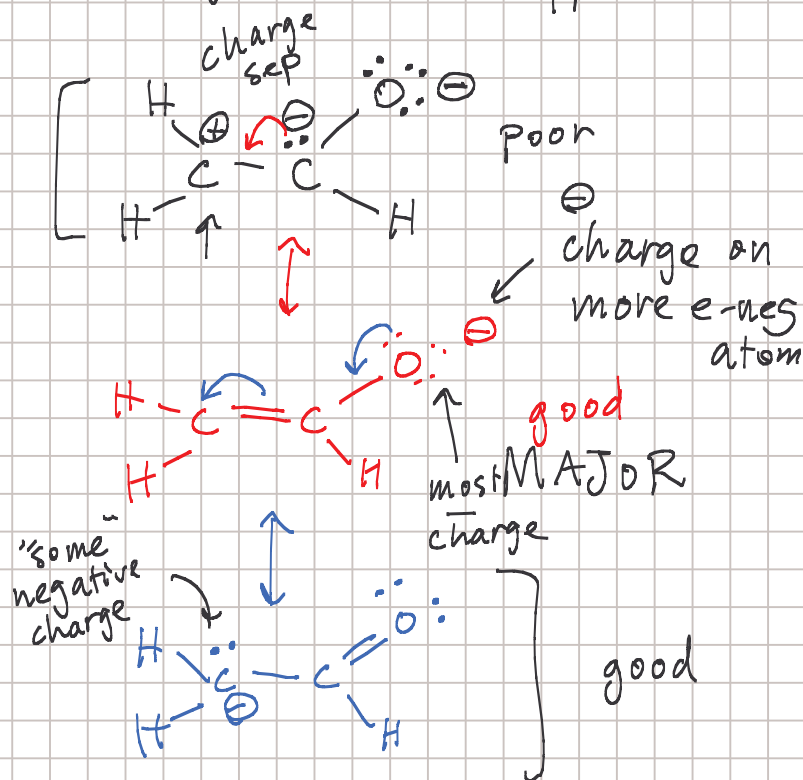 charge
sep
H ⊕ ⊖ :O: ⊖
C — C
H H
poor
⊖
charge on
more e-neg
atom
H O ⊖
C = C
H H
good
most MAJOR
charge
"some
negative
charge
H C — C = O
⊖
H H
good